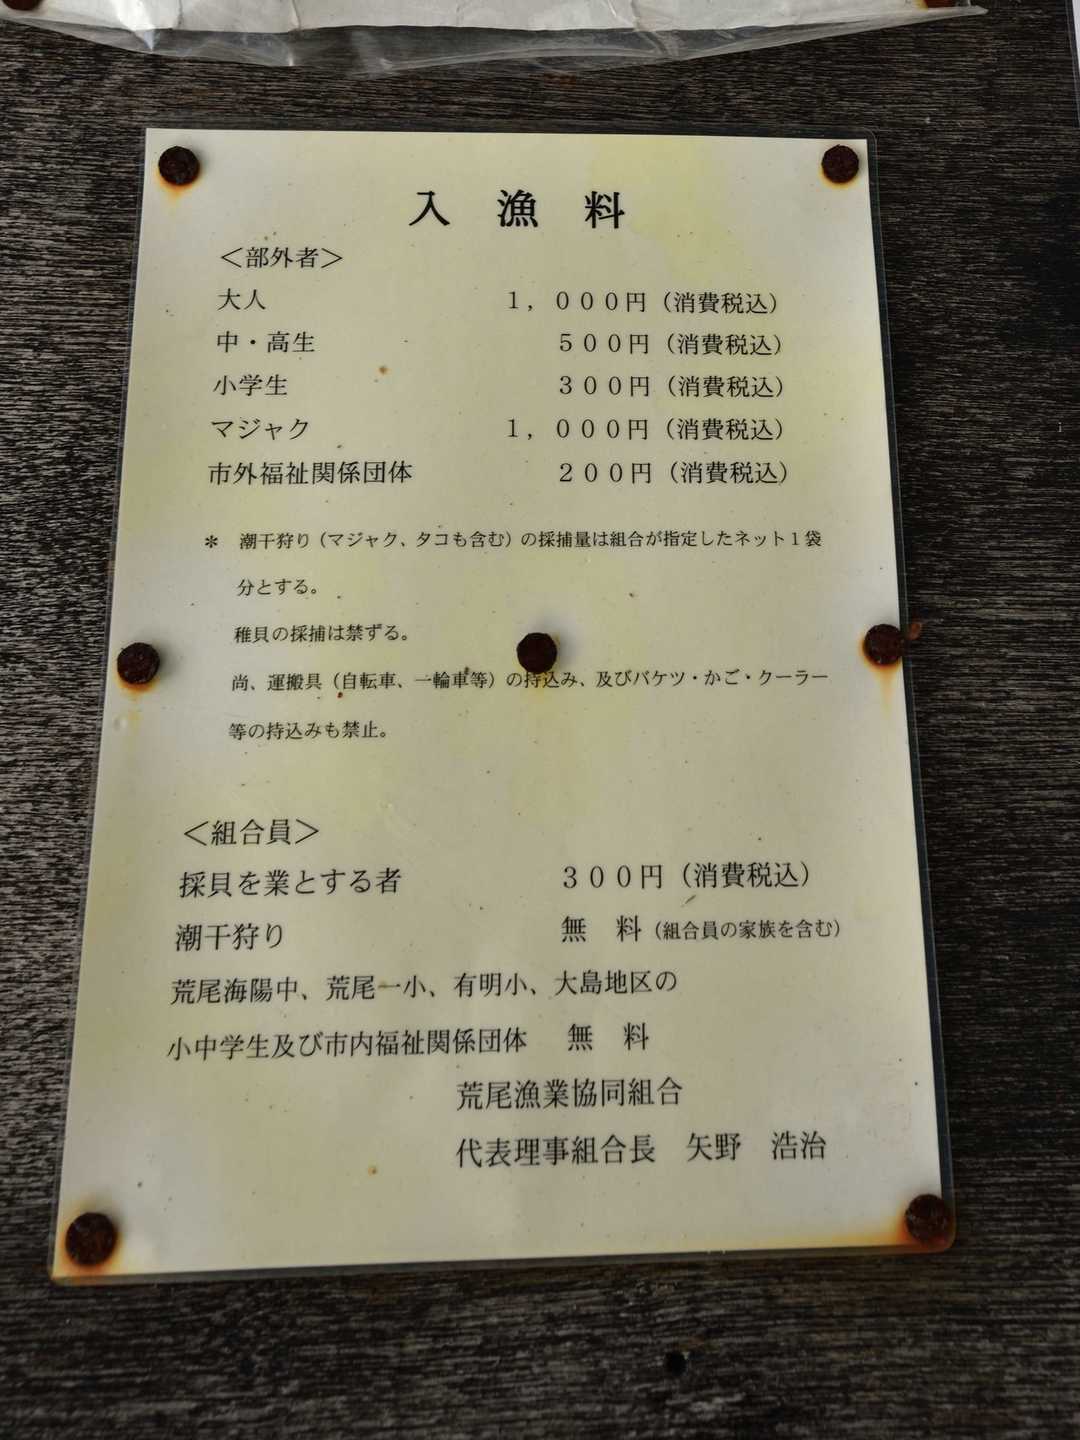 入 漁 料
＜部外者＞
大人 １，０００円（消費税込）
中・高生 ５００円（消費税込）
小学生 ３００円（消費税込）
マジャク １，０００円（消費税込）
市外福祉関係団体 ２００円（消費税込）
＊ 潮干狩り（マジャク、タコも含む）の採捕量は組合が指定したネット１袋
分とする。
稚貝の採捕は禁ずる。
尚、運搬具（自転車、一輪車等）の持込み、及びバケツ・かご・クーラー
等の持込みも禁止。
＜組合員＞
採貝を業とする者 ３００円（消費税込）
潮干狩り 無 料（組合員の家族を含む）
荒尾海陽中、荒尾一小、有明小、大島地区の
小中学生及び市内福祉関係団体 無 料
荒尾漁業協同組合
代表理事組合長 矢野 浩治